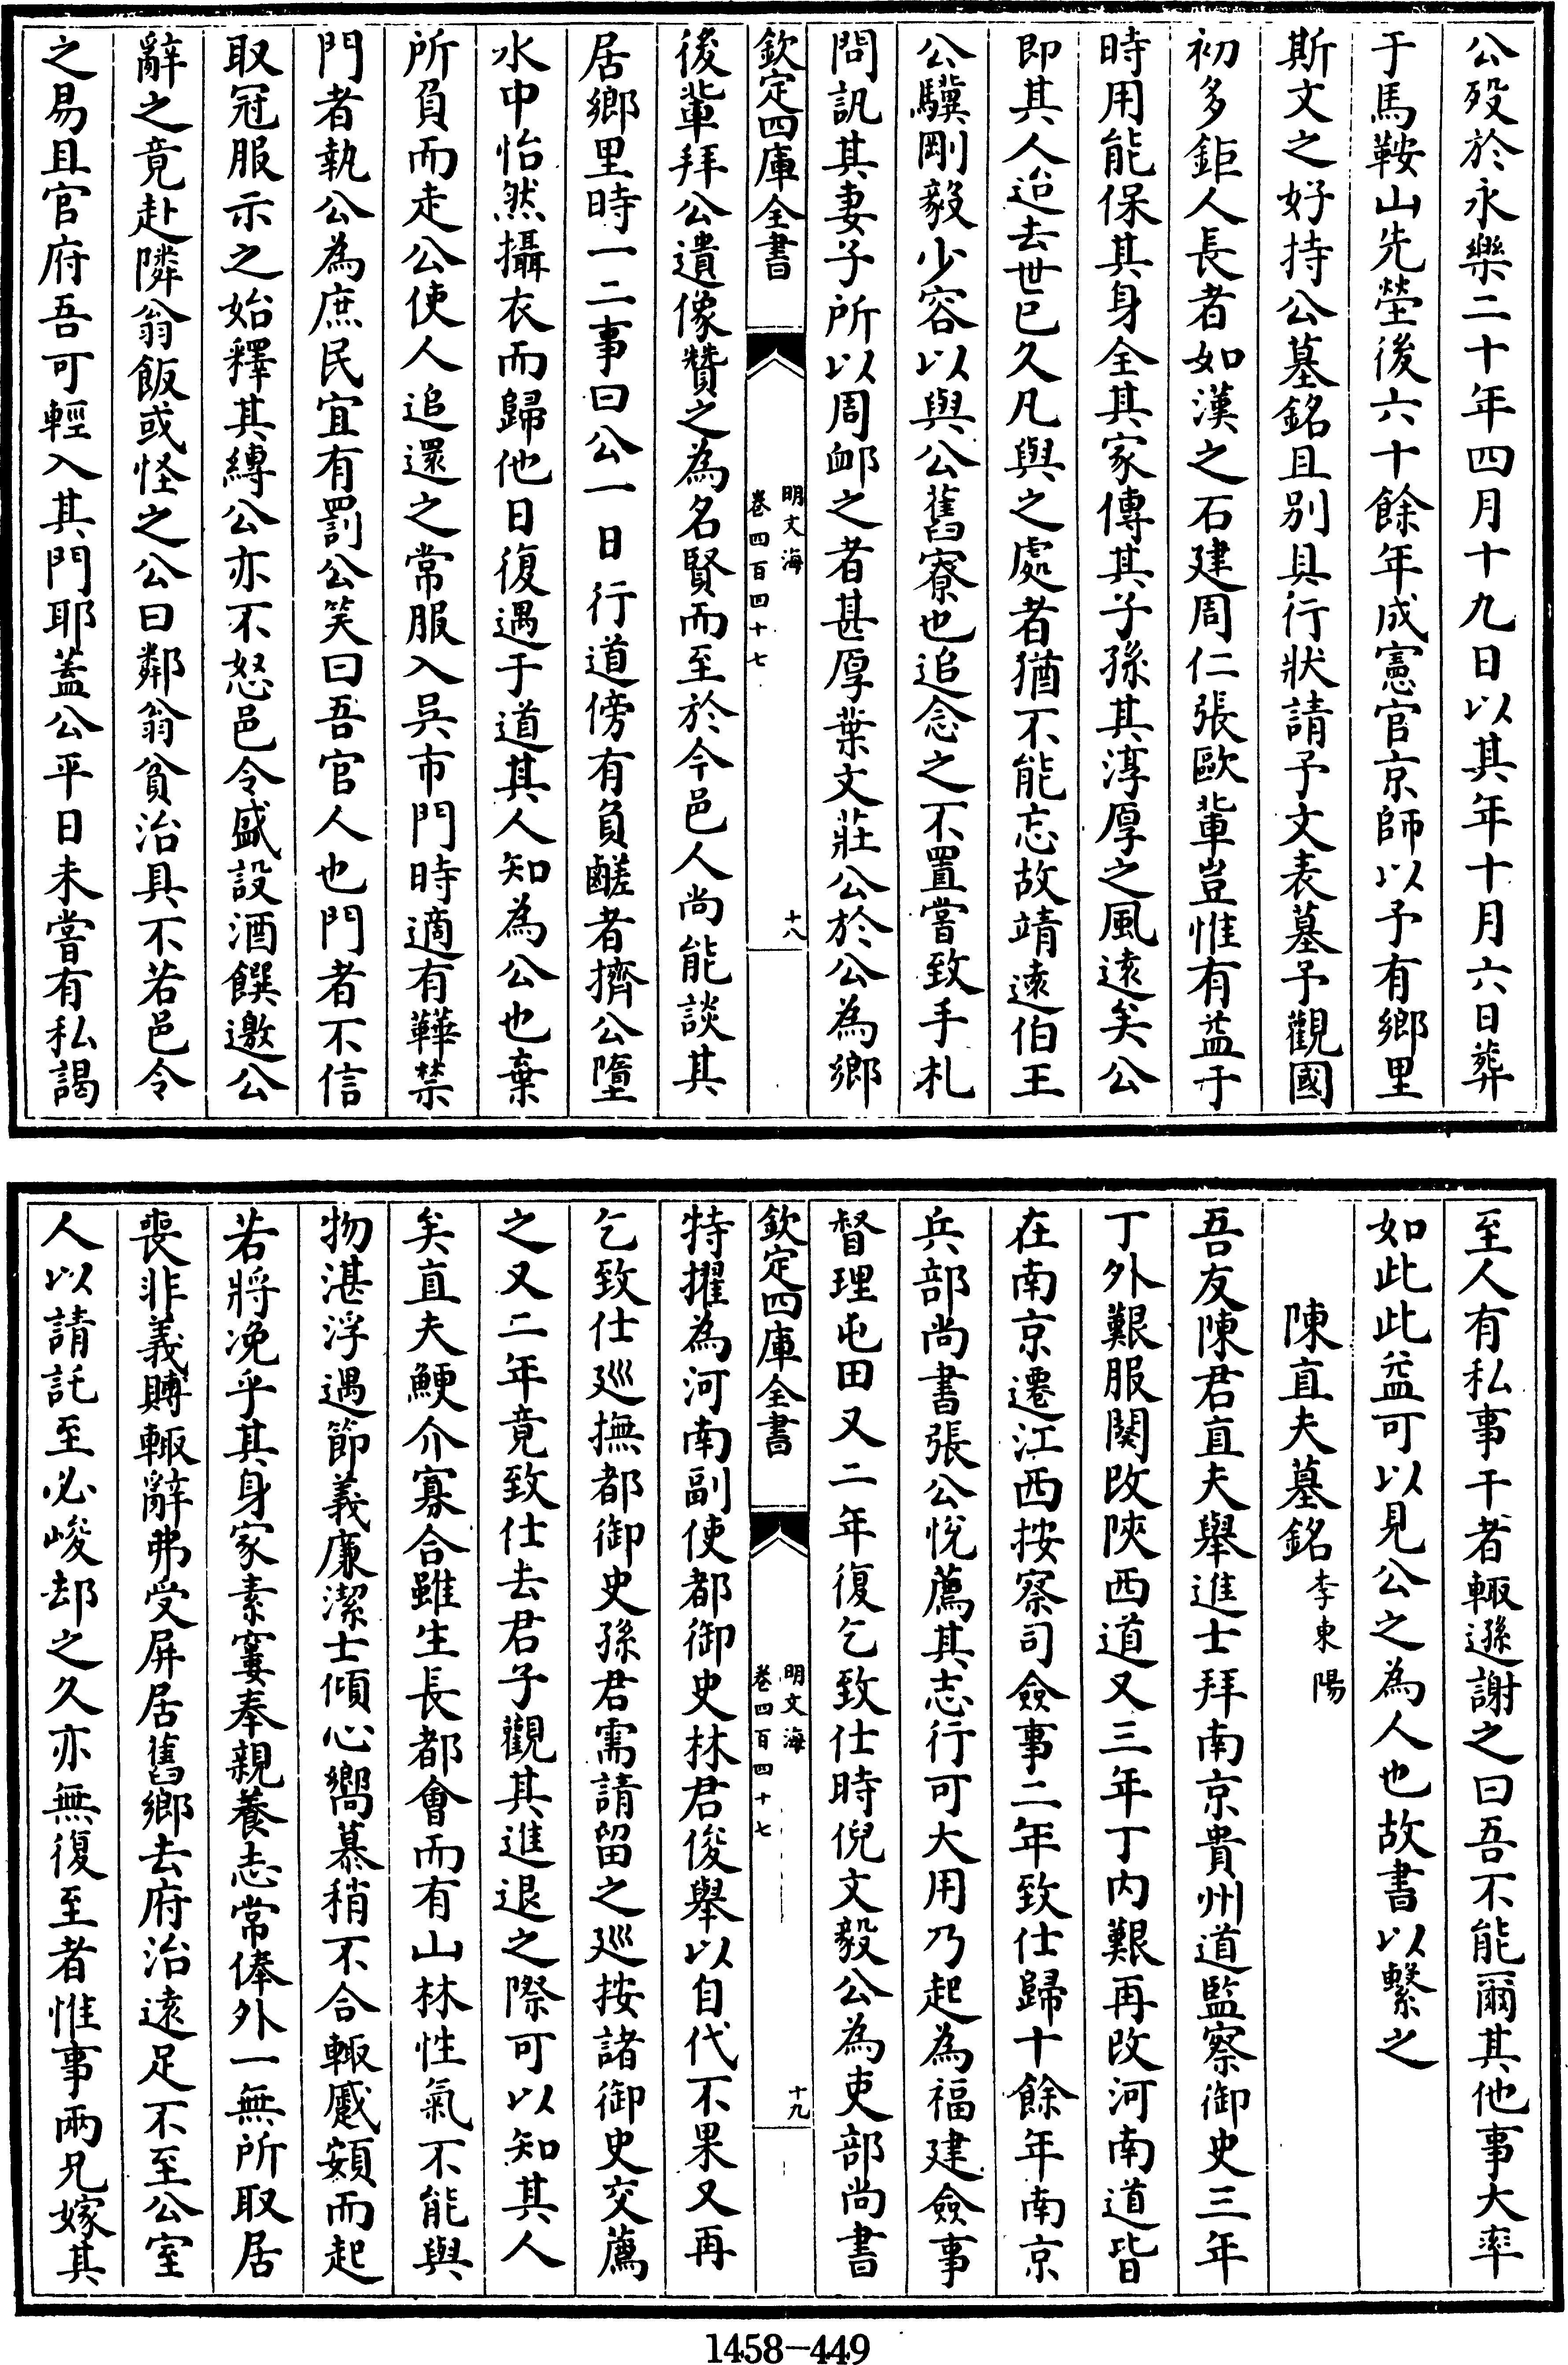 公歿於永樂二十年四月十九日以其年十月六日葬
于馬鞍山先塋後六十餘年成憲官京師以予有鄉里
斯文之好持公墓銘且别具行狀請予文表墓予觀國
初多鉅人長者如漢之石建周仁張歐輩豈惟有益于
時用能保其身全其家傳其子孫其淳厚之風遠矣公
即其人迨去世已久凡與之處者猶不能忘故靖遠伯王
公驥剛毅少容以與公舊寮也追念之不置嘗致手札
問訊其妻子所以周䘏之者甚厚葉文莊公於公為鄉
欽定四庫全書
明文海
卷四百四十七
十八
後輩拜公遺像贊之為名賢而至於今邑人尚能談其
居鄉里時一二事曰公一日行道傍有負鹺者擠公墮
水中怡然攝衣而歸他日復遇于道其人知為公也棄
所負而走公使人追還之常服入吳市門時適有鞾禁
門者執公為庶民宜有罰公笑曰吾官人也門者不信
取冠服示之始釋其縛公亦不怒邑令盛設酒饌邀公
辭之竟赴隣翁飯或怪之公曰鄰翁貧治具不若邑令
之易且官府吾可輕入其門耶蓋公平日未嘗有私謁
至人有私事干者輙遜謝之曰吾不能爾其他事大率
如此此益可以見公之為人也故書以繫之
陳直夫墓銘李東陽
吾友陳君直夫舉進士拜南京貴州道監察御史三年
丁外艱服闋改陜西道又三年丁内艱再改河南道皆
在南京遷江西按察司僉事二年致仕歸十餘年南京
兵部尚書張公悅薦其志行可大用乃起為福建僉事
督理屯田又二年復乞致仕時倪文毅公為吏部尚書
欽定四庫全書
明文海
卷四百四十七
十九
特擢為河南副使都御史林君俊舉以自代不果又再
乞致仕廵撫都御史孫君需請留之廵按諸御史交薦
之又二年竟致仕去君子觀其進退之際可以知其人
矣直夫鯁介寡合雖生長都會而有山林性氣不能與
物湛浮遇節義廉潔士傾心嚮慕稍不合輙蹙頞而起
若將浼乎其身家素窶奉親養志常俸外一無所取居
喪非義賻輙辭弗受屏居舊鄉去府治遠足不至公室
人以請託至必峻却之久亦無復至者惟事兩兄嫁其
1458-449